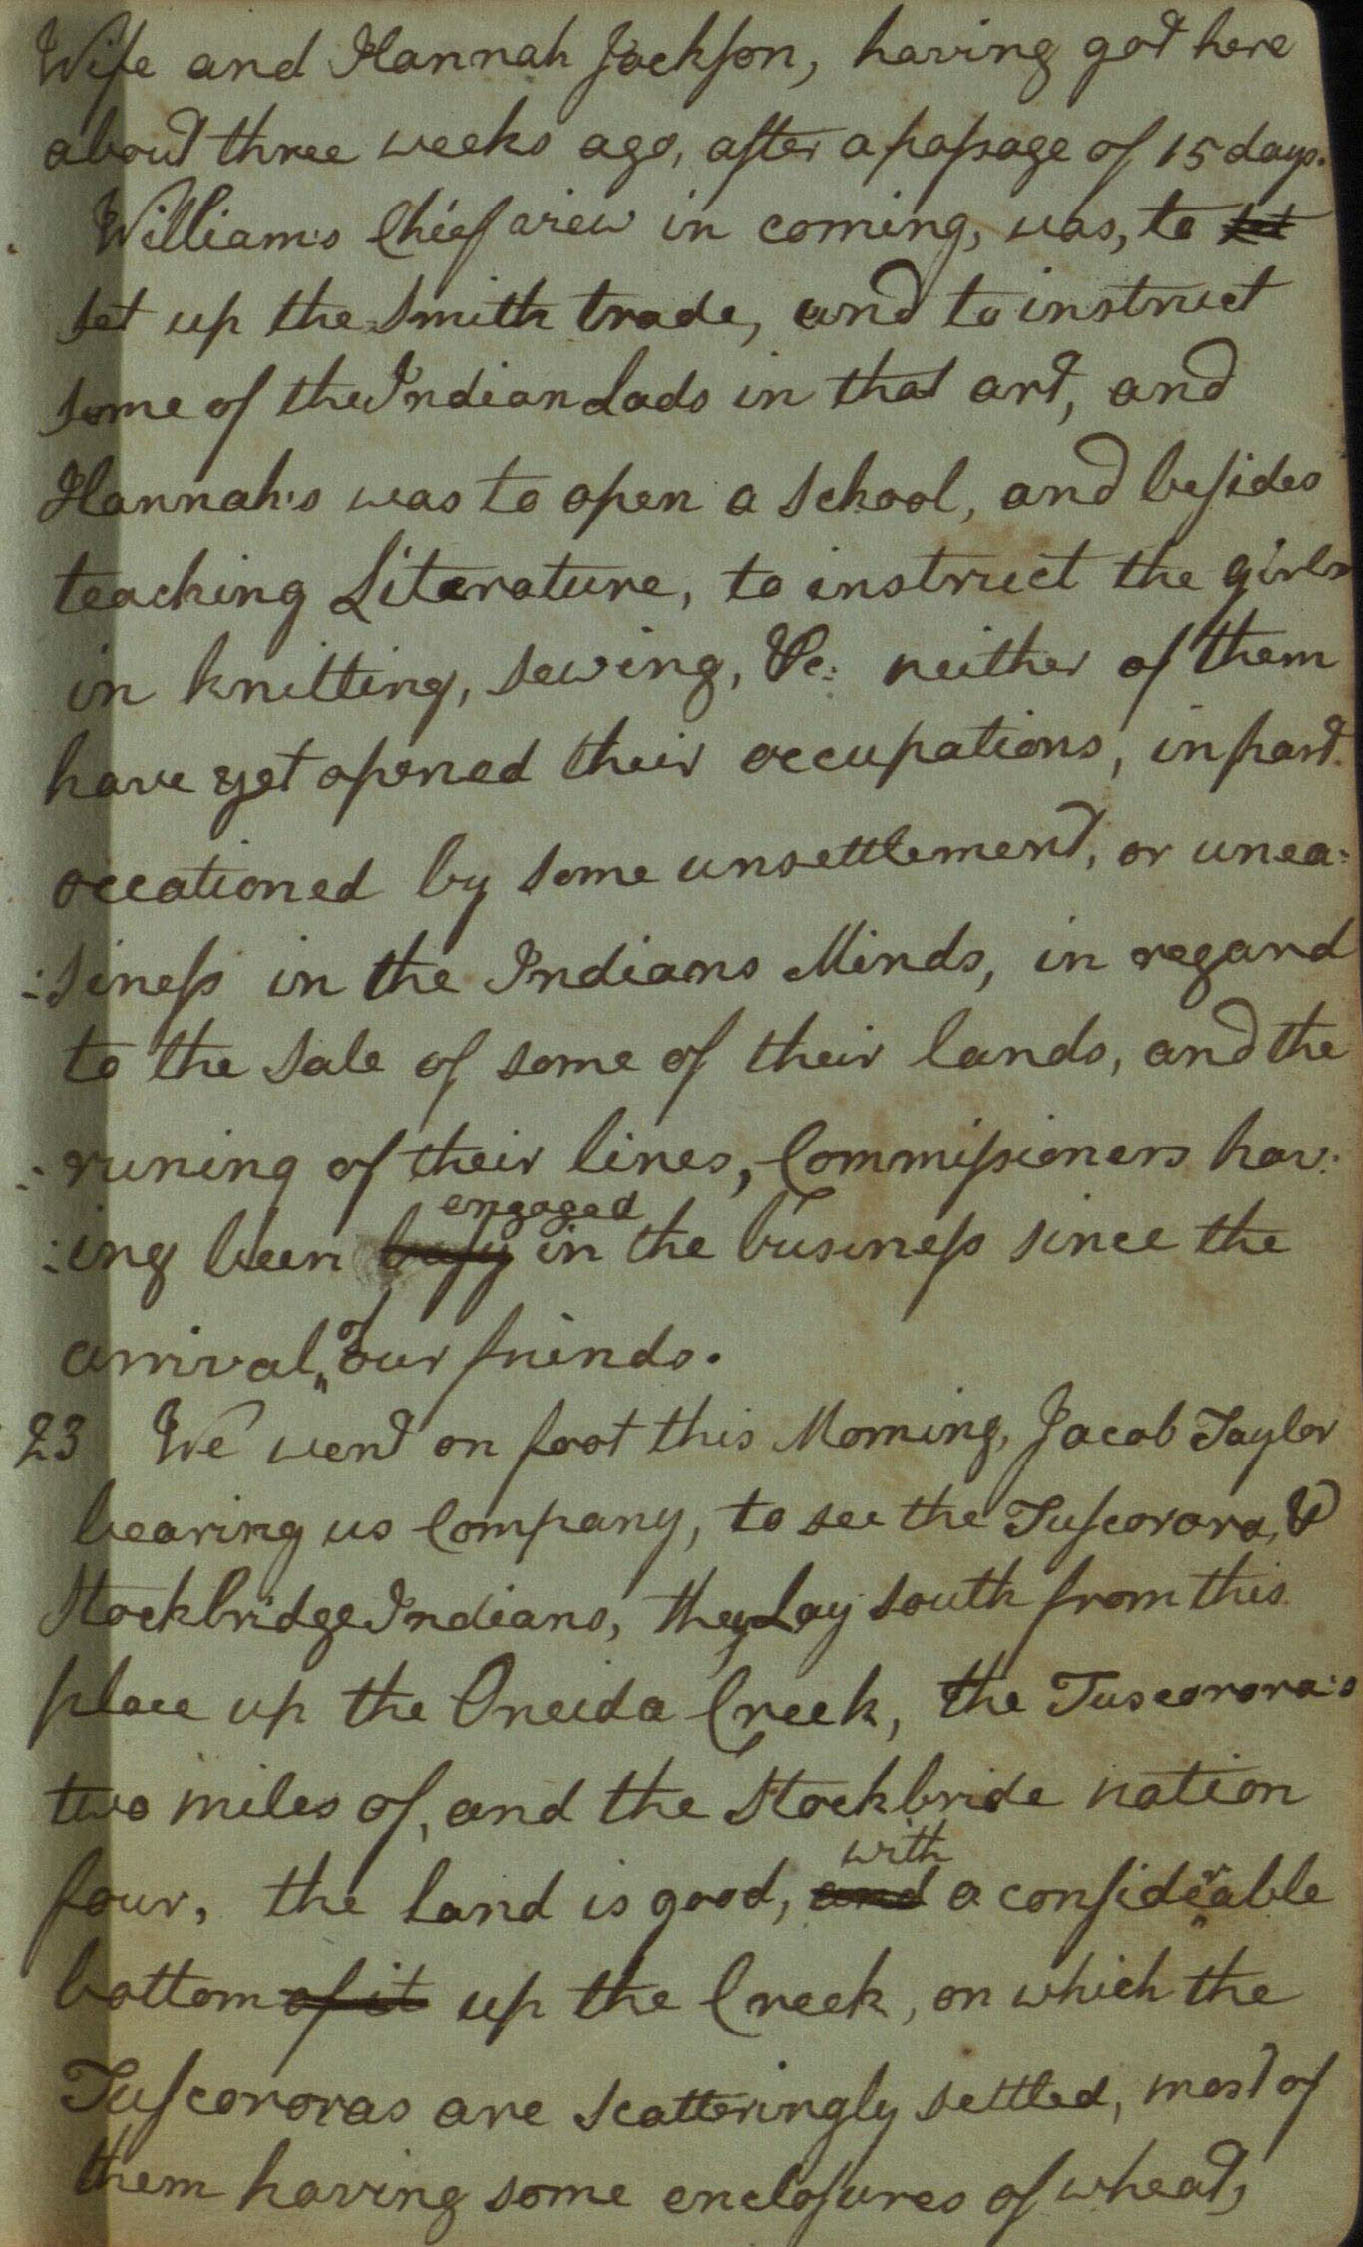 Wife and Hannah Jackson, having got here
about three weeks ago, after a passage of 15 days.
William's Chief view in coming, was, to set
set up the Smith trade, and to instruct
some of the Indian Lads in that art, and
Hannah's was to open a School, and besides
teaching Literature, to instruct the girls
in knitting, sewing, &c: neither of them
have yet opened their occupations, in part
occationed by some unsettlement, or unea:
:siness in the Indians Minds, in regard
to the Sale of some of their lands, and the
runing of their lines, Commissioners hav:
engaged
:ing been busy in the business since the
of
arrival, our friends.
23 We went on foot this Morning, Jacob Taylor
bearing us Company, to see the Tuscorora, &
Stockbridge Indians, they Lay south from this
place up the Oneida Creek, the Tuscorora's
two miles of, and the Stockbride nation
with
four, the land is good, and a considerable
bottom of it up the Creek, on which the
Tuscororas are scatteringly settled, most of
them having some enclosures of wheat,